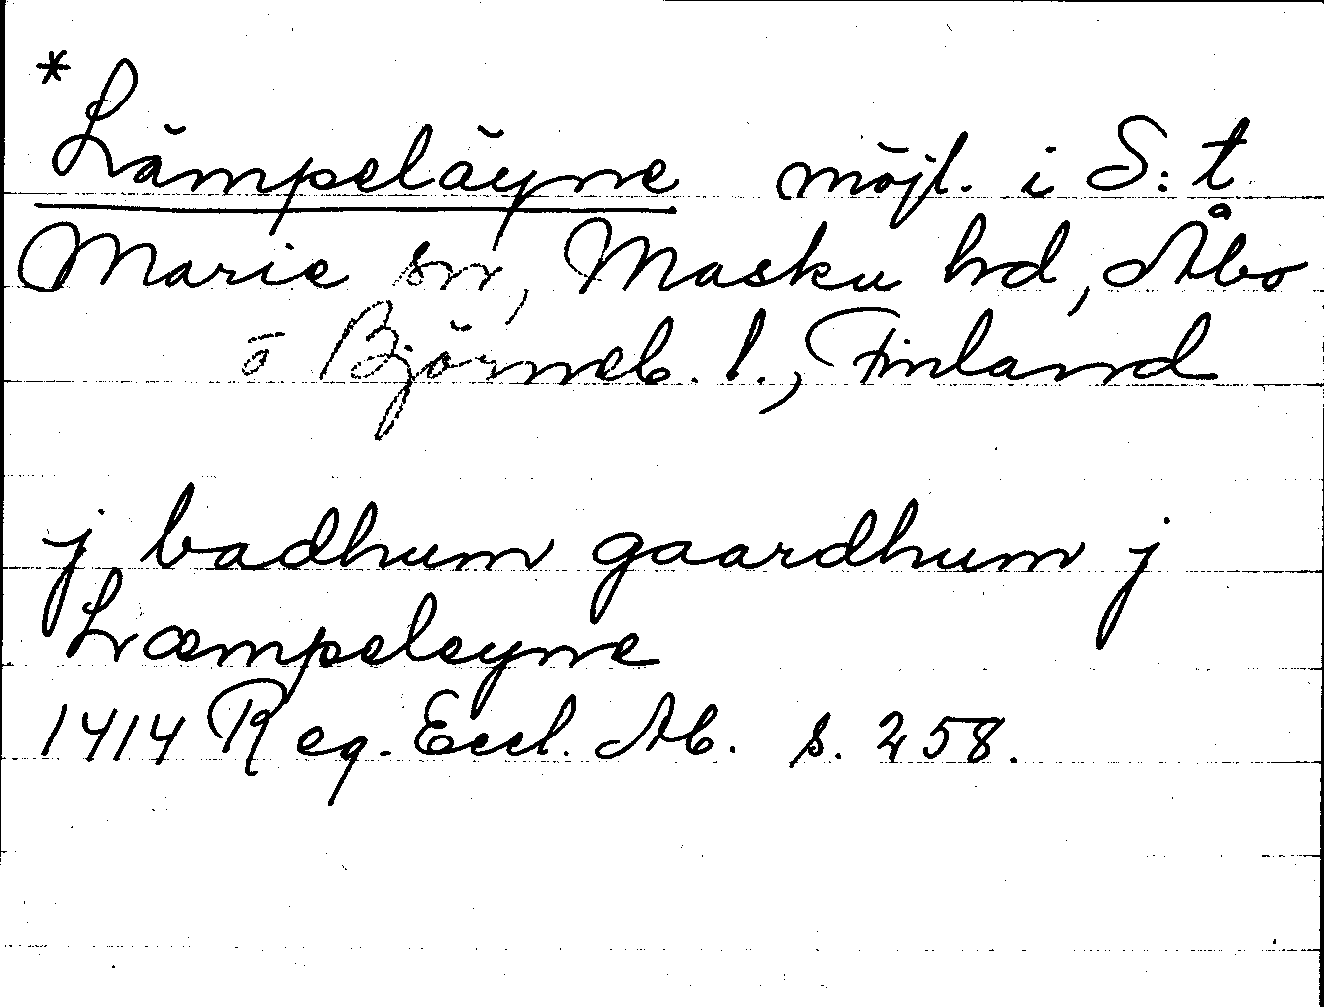 * Lämpeläyne möjl. i S:t
Marie sn, Masku hd, Åbo
o Björneb. l., Finland
j badhum gaardhum j
Læmpeleyne
1414 Reg. Eccl. Ab. s. 258.